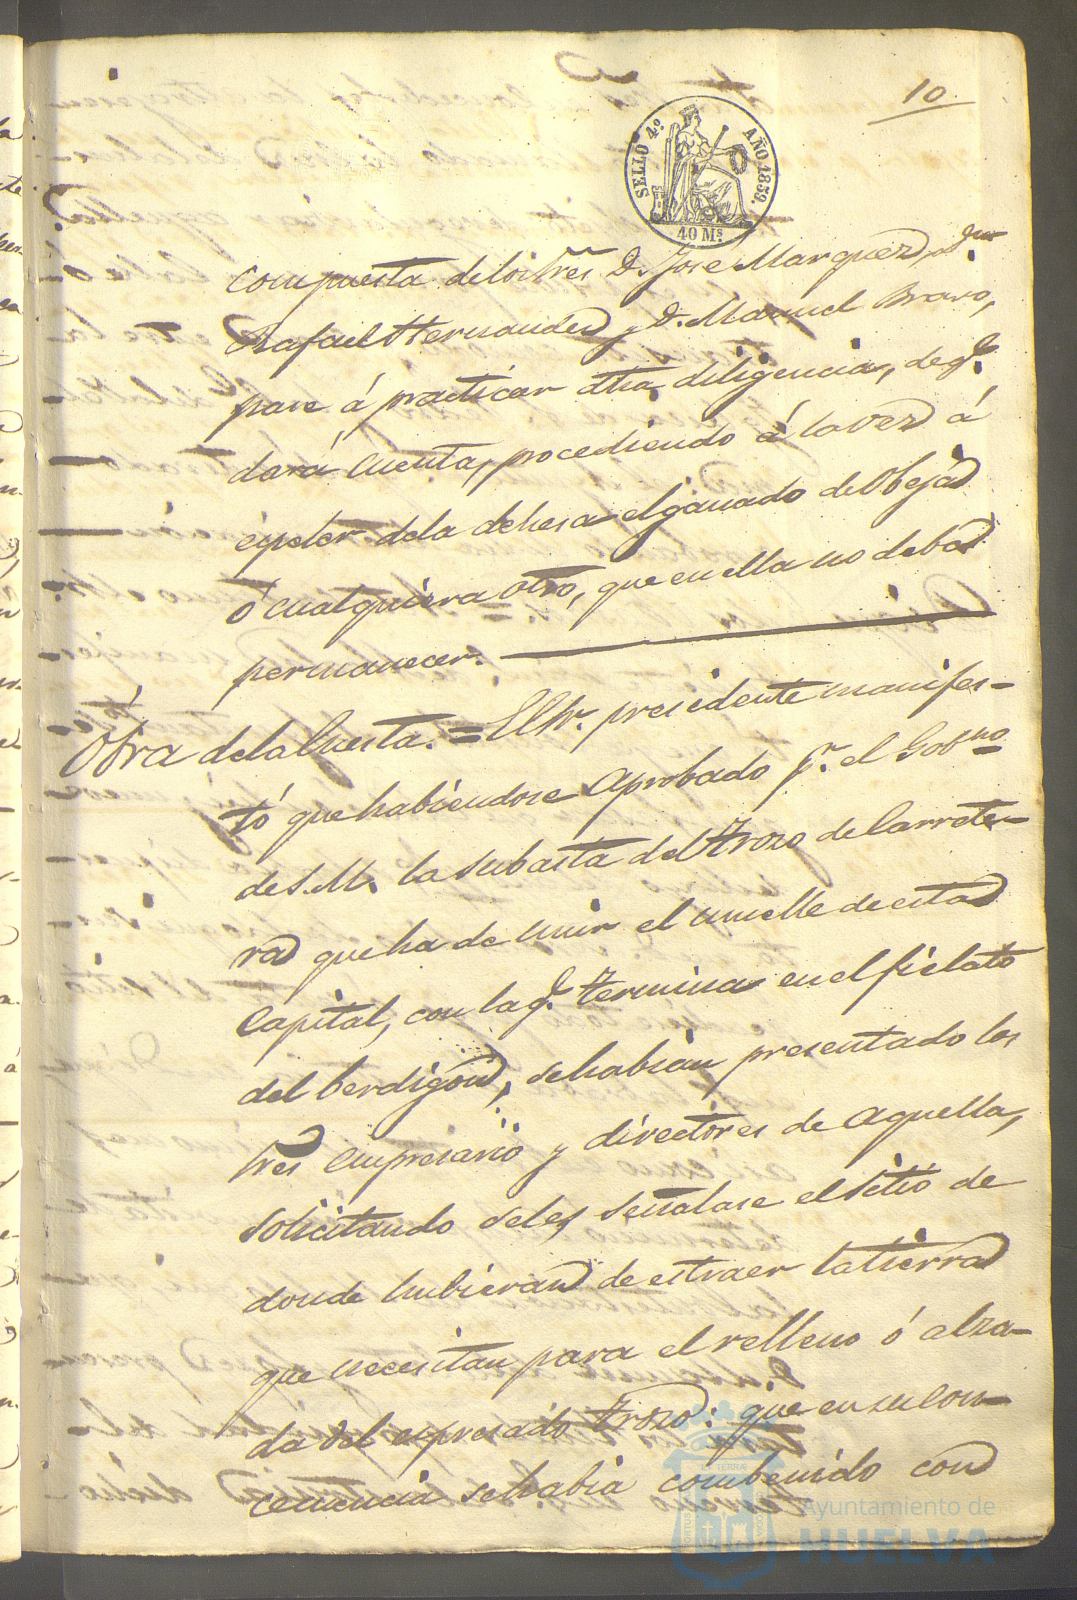 10
SELLO 4º AÑO 1859.
40 Ms
compuesta de los Sres. D. Jose Marquez, D.
Rafael Hernandez y D. Manuel Bravo,
pase á practicar dha diligencia, de q.e
dará cuenta, procediendo á la vez á
epeler de la dehesa el ganado de Obejas
ó cualquiera otro, que en ella no deba
permanecer.
Obra de la Cuesta. = El Sr. presidente manifes-
tó que habiendose aprobado pr. el Gobno
de S. M. la subasta del Trozo de Carrete-
ra que ha de unir el muelle de esta
Capital, con la q.e termina en el fielato
del berdigon, se habian presentado los
Sres Empresario y directores de aquella,
solicitando se les señalase el sitio de
donde hubieran de estraer la tierra
que necesitan para el relleno ó alza-
da del espresado Trozo: que en su con-
cecuencia se habia combenido con
Ayuntamiento de
HUELVA